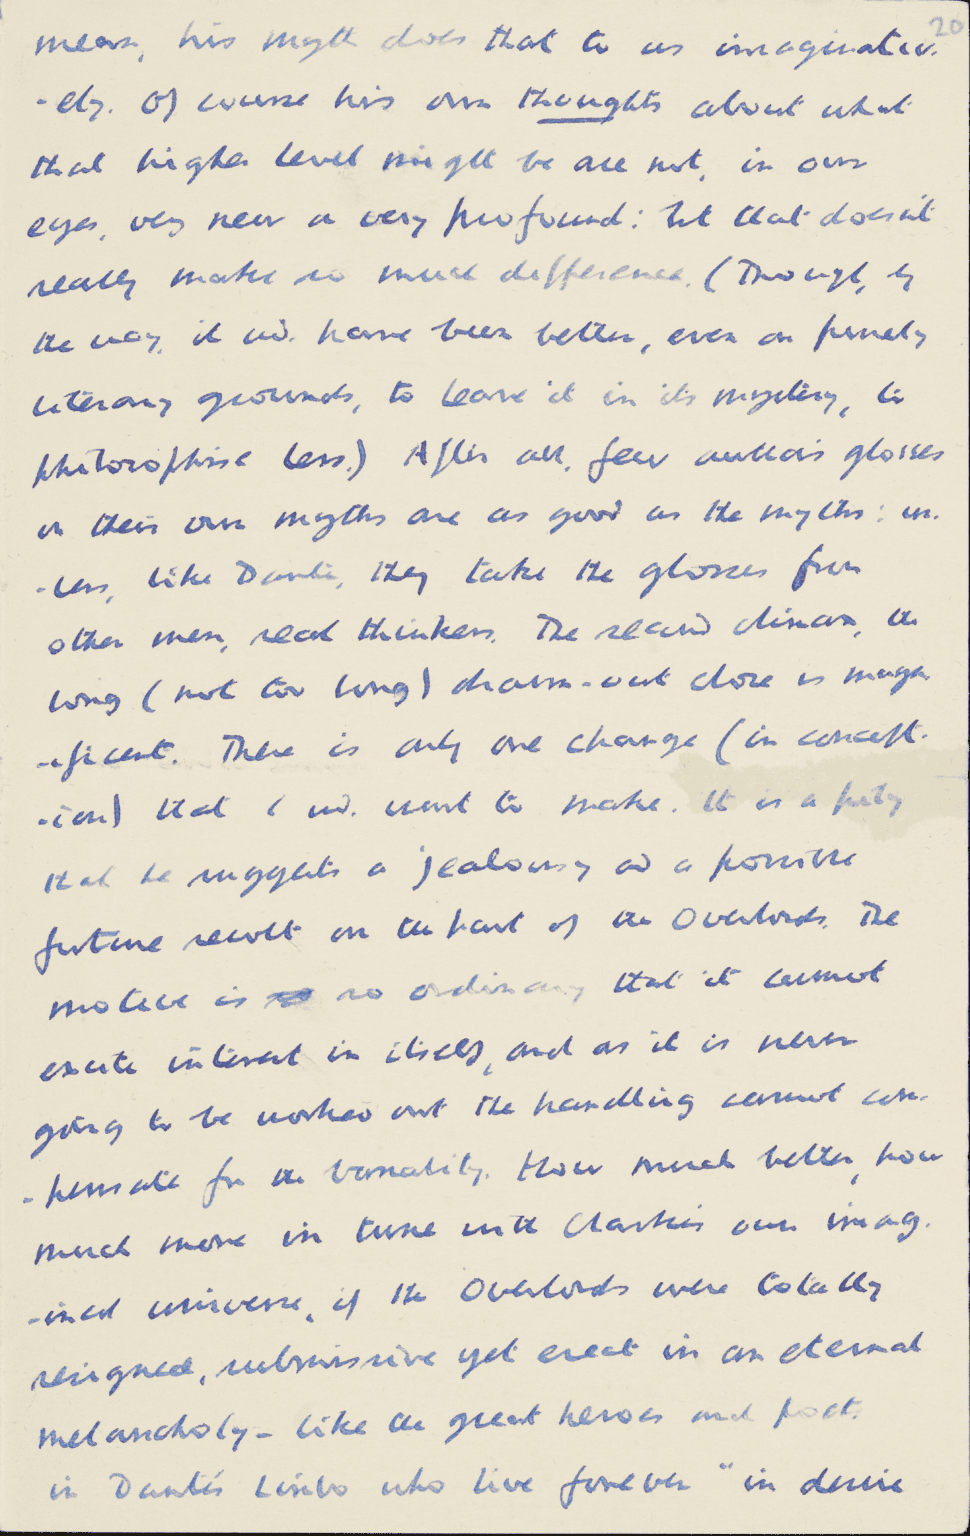 20
means, his myth does that to us imaginativ-
-ely. Of course his own thoughts about what
that higher level might be are not, in our
eyes, very new or very profound: but that doesn't
really make so much difference. (Though, by
the way, it wd. have been better, even on purely
literary grounds, to leave it in its mystery, to
philosophise less.) After all, few authors' glosses
on their own myths are as good as the myths: un-
-less, like Dante, they take the glosses from
other men, real thinkers. The second climax, the
long (not too long) drawn-out close is magn-
-ificent. There is only one change (in concept-
-ion) that I wd. want to make. It is a pity
that he suggests a jealousy and a possible
future revolt on the part of the Overlords. The
motive is so ordinary that it cannot
excite interest in itself, and as it is never
going to be worked out the handling cannot com-
-pensate for the banality. How much better, how
much more in tune with Clarke's own imag-
-ined universe, if the Overlords were totally
resigned, submissive yet erect in an eternal
melancholy - like the great heroes and poets
in Dante's Limbo who live forever "in desire